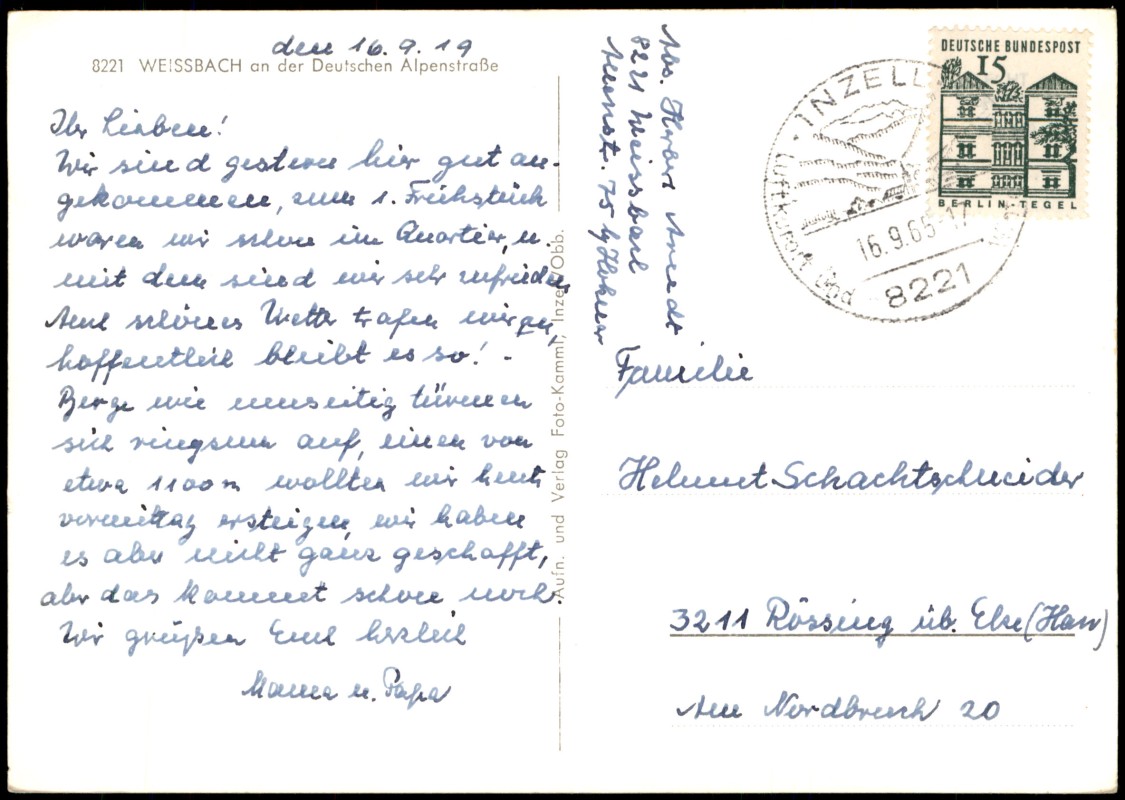 den 16.9.19
8221 WEISSBACH an der Deutschen Alpenstraße
Ihr Lieben!
Wir sind gestern hier gut an-
gekommen, zum 1. Frühstück
waren wir schon im Quartier, u.
mit dem sind wir sehr zufrieden
Auch schönes Wetter trafen wir an,
hoffentlich bleibt es so! -
Berge wie unseitig türmen
sich ringsum auf, einen von
etwa 1100 m wollten wir heute
vormittag ersteigen, wir haben
es aber nicht ganz geschafft,
aber das kommt schon noch.
Wir grüßen Euch herzlich
Mama u. Papa
Aufn. und Verlag Foto-Kamml, Inzell/Obb.
Abs. Herbert
8221 Weissbach
75
DEUTSCHE BUNDESPOST
15
BERLIN-TEGEL
INZELL
Luftkurort und
16.9.65-17
8221
Familie
Helmut Schachtschneider
3211 Rössing üb. Elze (Han)
Am Nordbruch 20